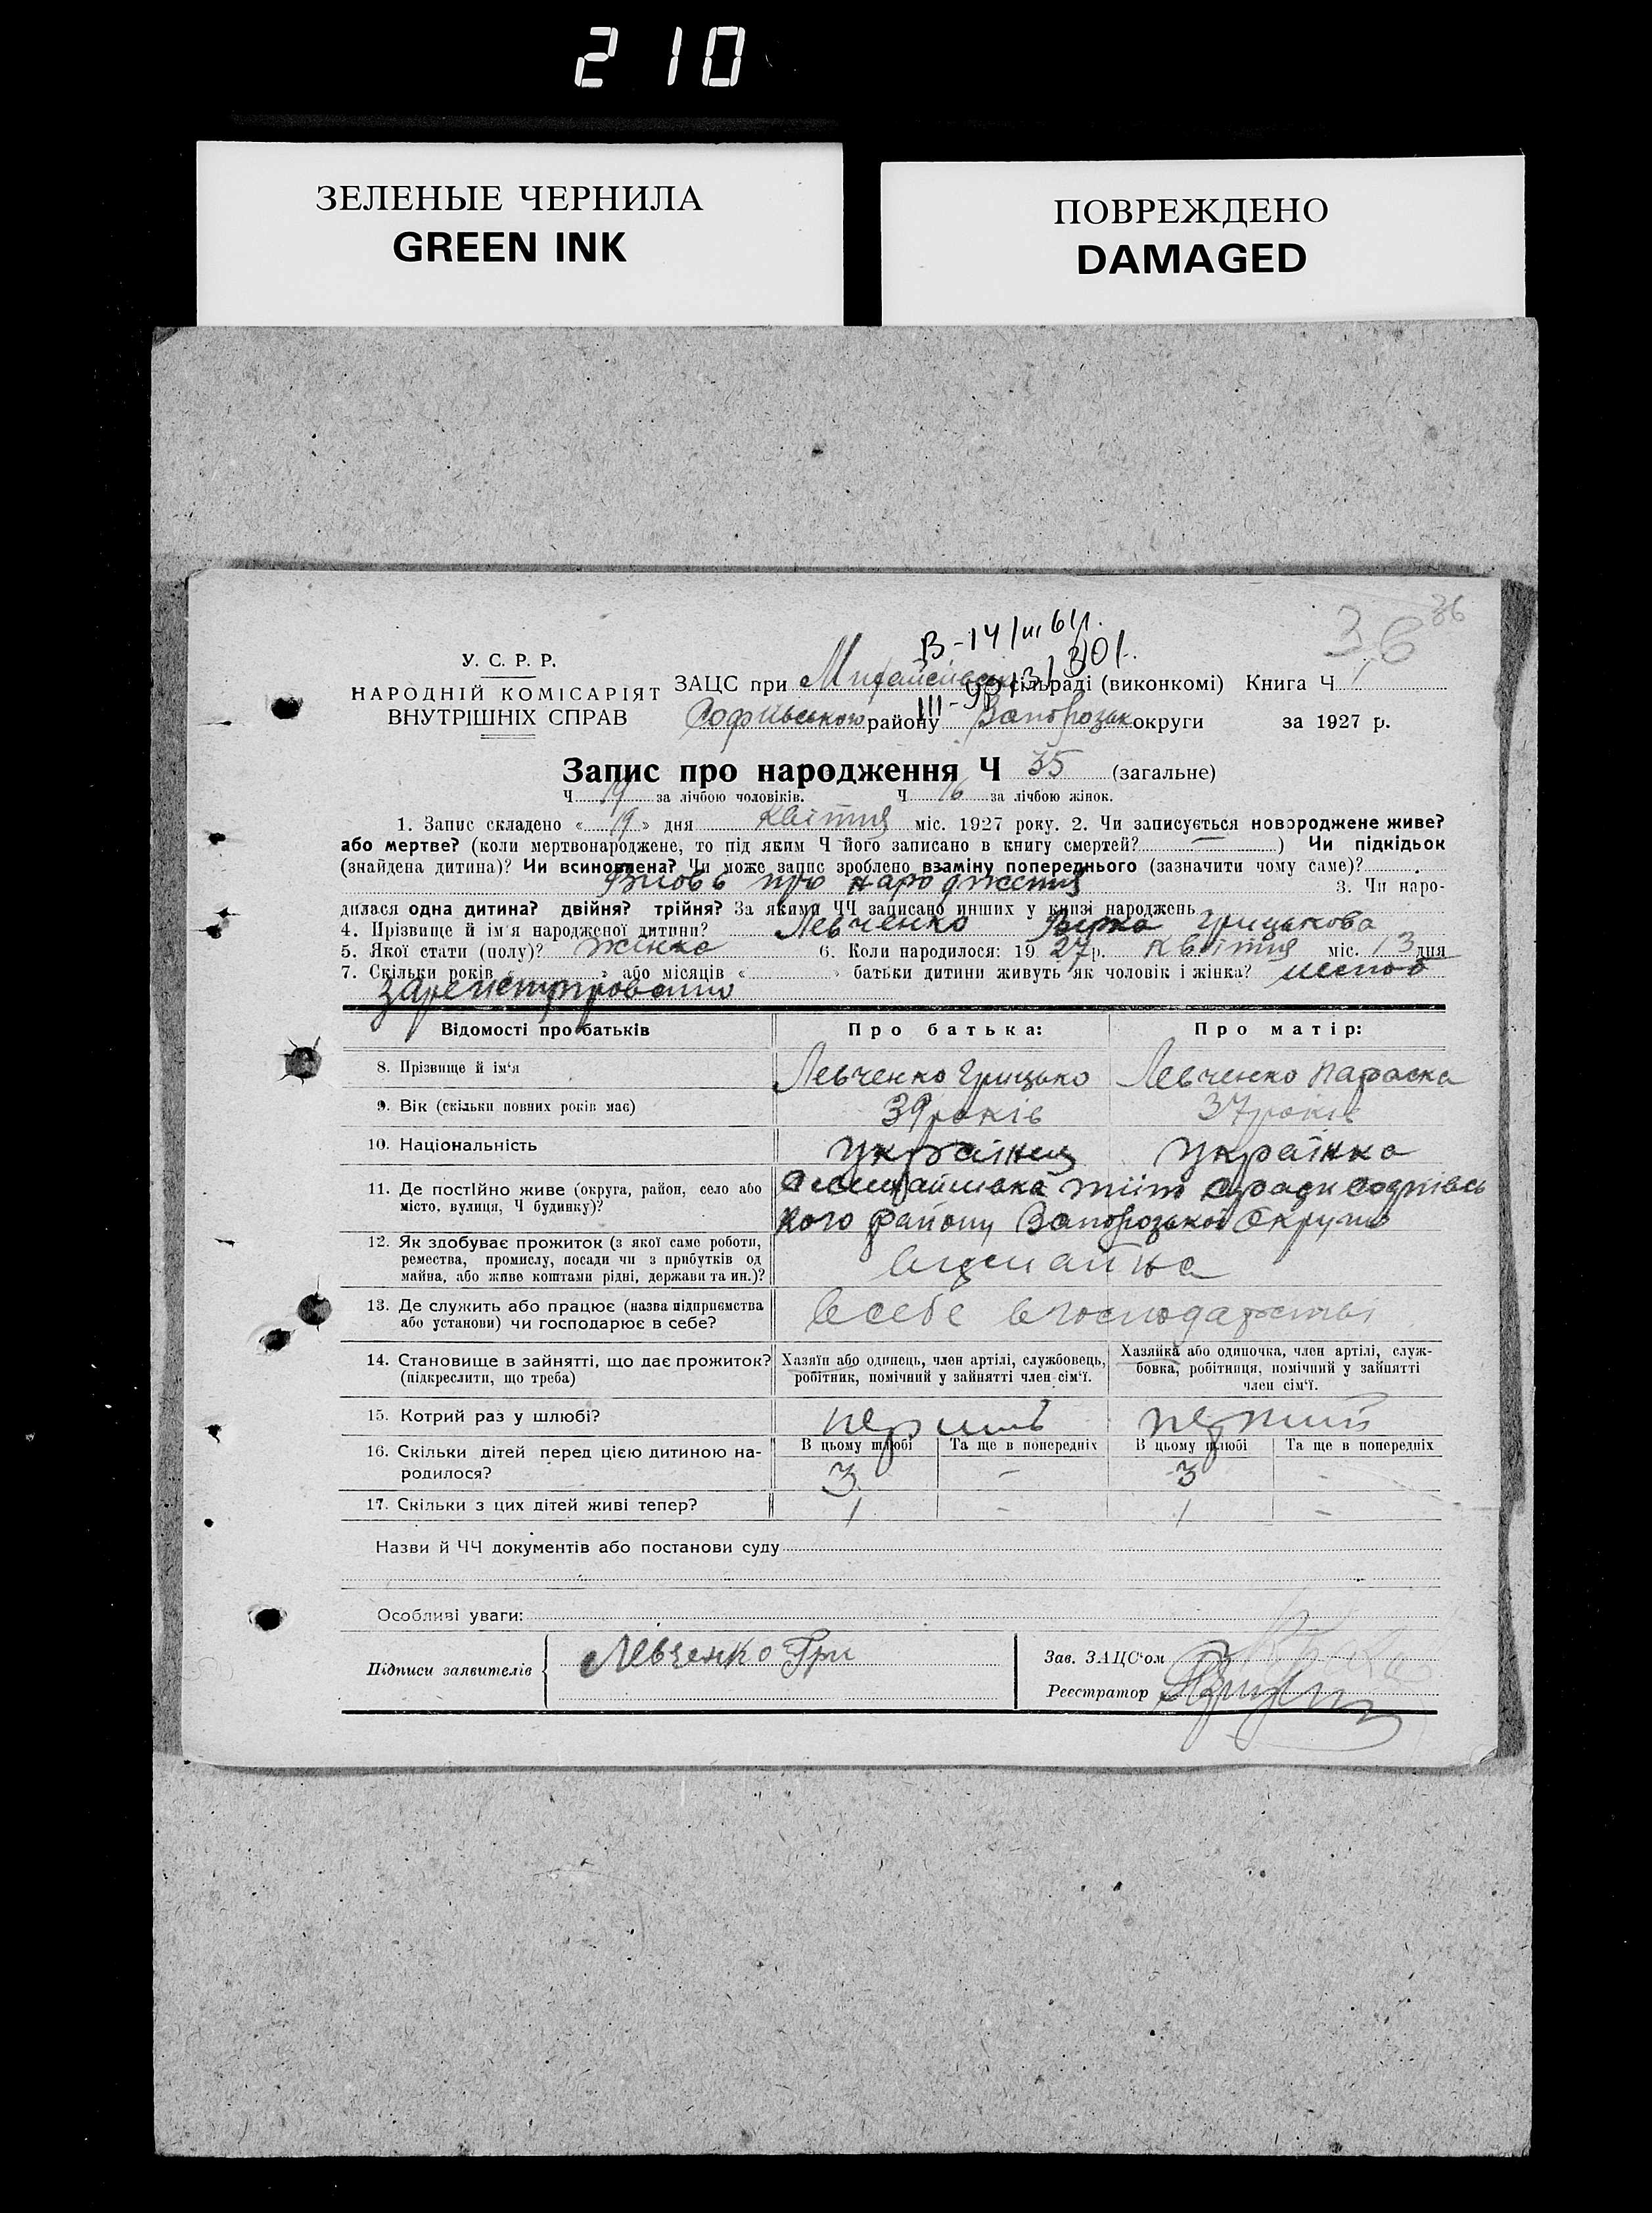 210
ЗЕЛЕНЫЕ ЧЕРНИЛА
GREEN INK
ПОВРЕЖДЕНО
DAMAGED
36
36
У. С. Р. Р.
НАРОДНІЙ КОМІСАРІЯТ
ВНУТРІШНІХ СПРАВ
ЗАЦС при сільраді (виконкомі) Книга Ч 1
району Запорозьк округи за 1927 р.
Запис про народження Ч 35 (загальне)
Ч 19 за лічбою чоловіків. Ч 16 за лічбою жінок.
1. Запис складено « 19 » дня квітня міс. 1927 року. 2. Чи записується новороджене живе?
або мертве? (коли мертвонароджене, то під яким Ч його записано в книгу смертей? — ) Чи підкідьок
(знайдена дитина)? Чи всиновлена? Чи може запис зроблено взаміну попереднього (зазначити чому саме)?
про народження 3. Чи наро-
дилася одна дитина? двійня? трійня? За якими ЧЧ записано инших у книзі народжень
4. Прізвище й ім'я народженої дитини? Левченко Вірка Грицькова
5. Якої стати (полу)? жінка 6. Коли народилося: 19 27 р. квітня міс. 13 дня
7. Скільки років « » або місяців « » батьки дитини живуть як чоловік і жінка?
Відомості про батьків
Про батька:
Про матір:
8. Прізвище й ім'я
Левченко Грицько
Левченко Параска
9. Вік (скільки повних років має)
39 років
37 років
10. Національність
Українець
Українка
11. Де постійно живе (округа, район, село або
місто, вулиця, Ч будинку)?
кого району Запорозької Округи
12. Як здобуває прожиток (з якої саме роботи,
ремества, промислу, посади чи з прибутків од
майна, або живе коштами рідні, держави та ин.)?
13. Де служить або працює (назва підприємства
або установи) чи господарює в себе?
в себе в господарстві
14. Становище в зайнятті, що дає прожиток?
(підкреслити, що треба)
Хазяїн або одинець, член артілі, службовець,
робітник, помічний у зайнятті член сім'ї.
Хазяйка або одиночка, член артілі, служ-
бовка, робітниця, помічний у зайнятті
член сім'ї.
15. Котрий раз у шлюбі?
16. Скільки дітей перед цією дитиною на-
родилося?
В цьому шлюбі
Та ще в попередніх
В цьому шлюбі
Та ще в попередніх
3 — 3 -
17. Скільки з цих дітей живі тепер?
1 - 1 -
Назви й ЧЧ документів або постанови суду
Особливі уваги:
Підписи заявителів
Левченко Гри
Зав. ЗАЦС'ом
Реєстратор